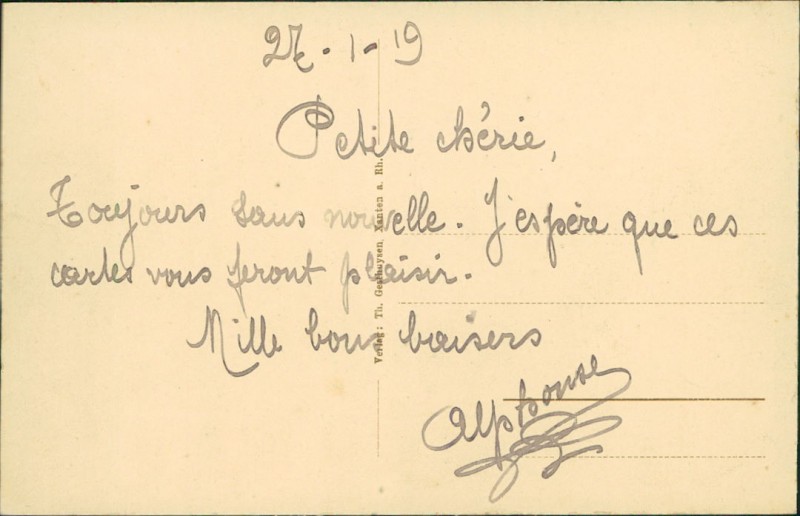 27-1-19
Petite chérie,
Toujours sans nouvelle. J'espère que ces
cartes vous feront plaisir.
Mille bons baisers
Alphonse
Verlag: Th. Gesthuysen, Xanten a. Rh.